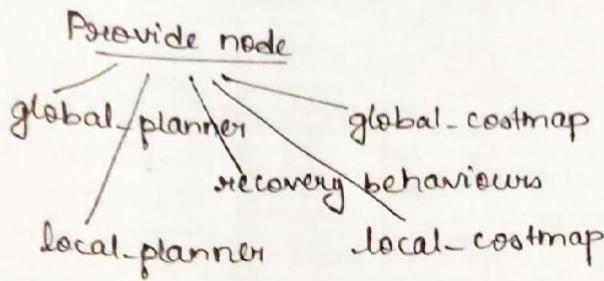 Provide node
global_planner global_costmap
recovery behaviours
local_planner local_costmap